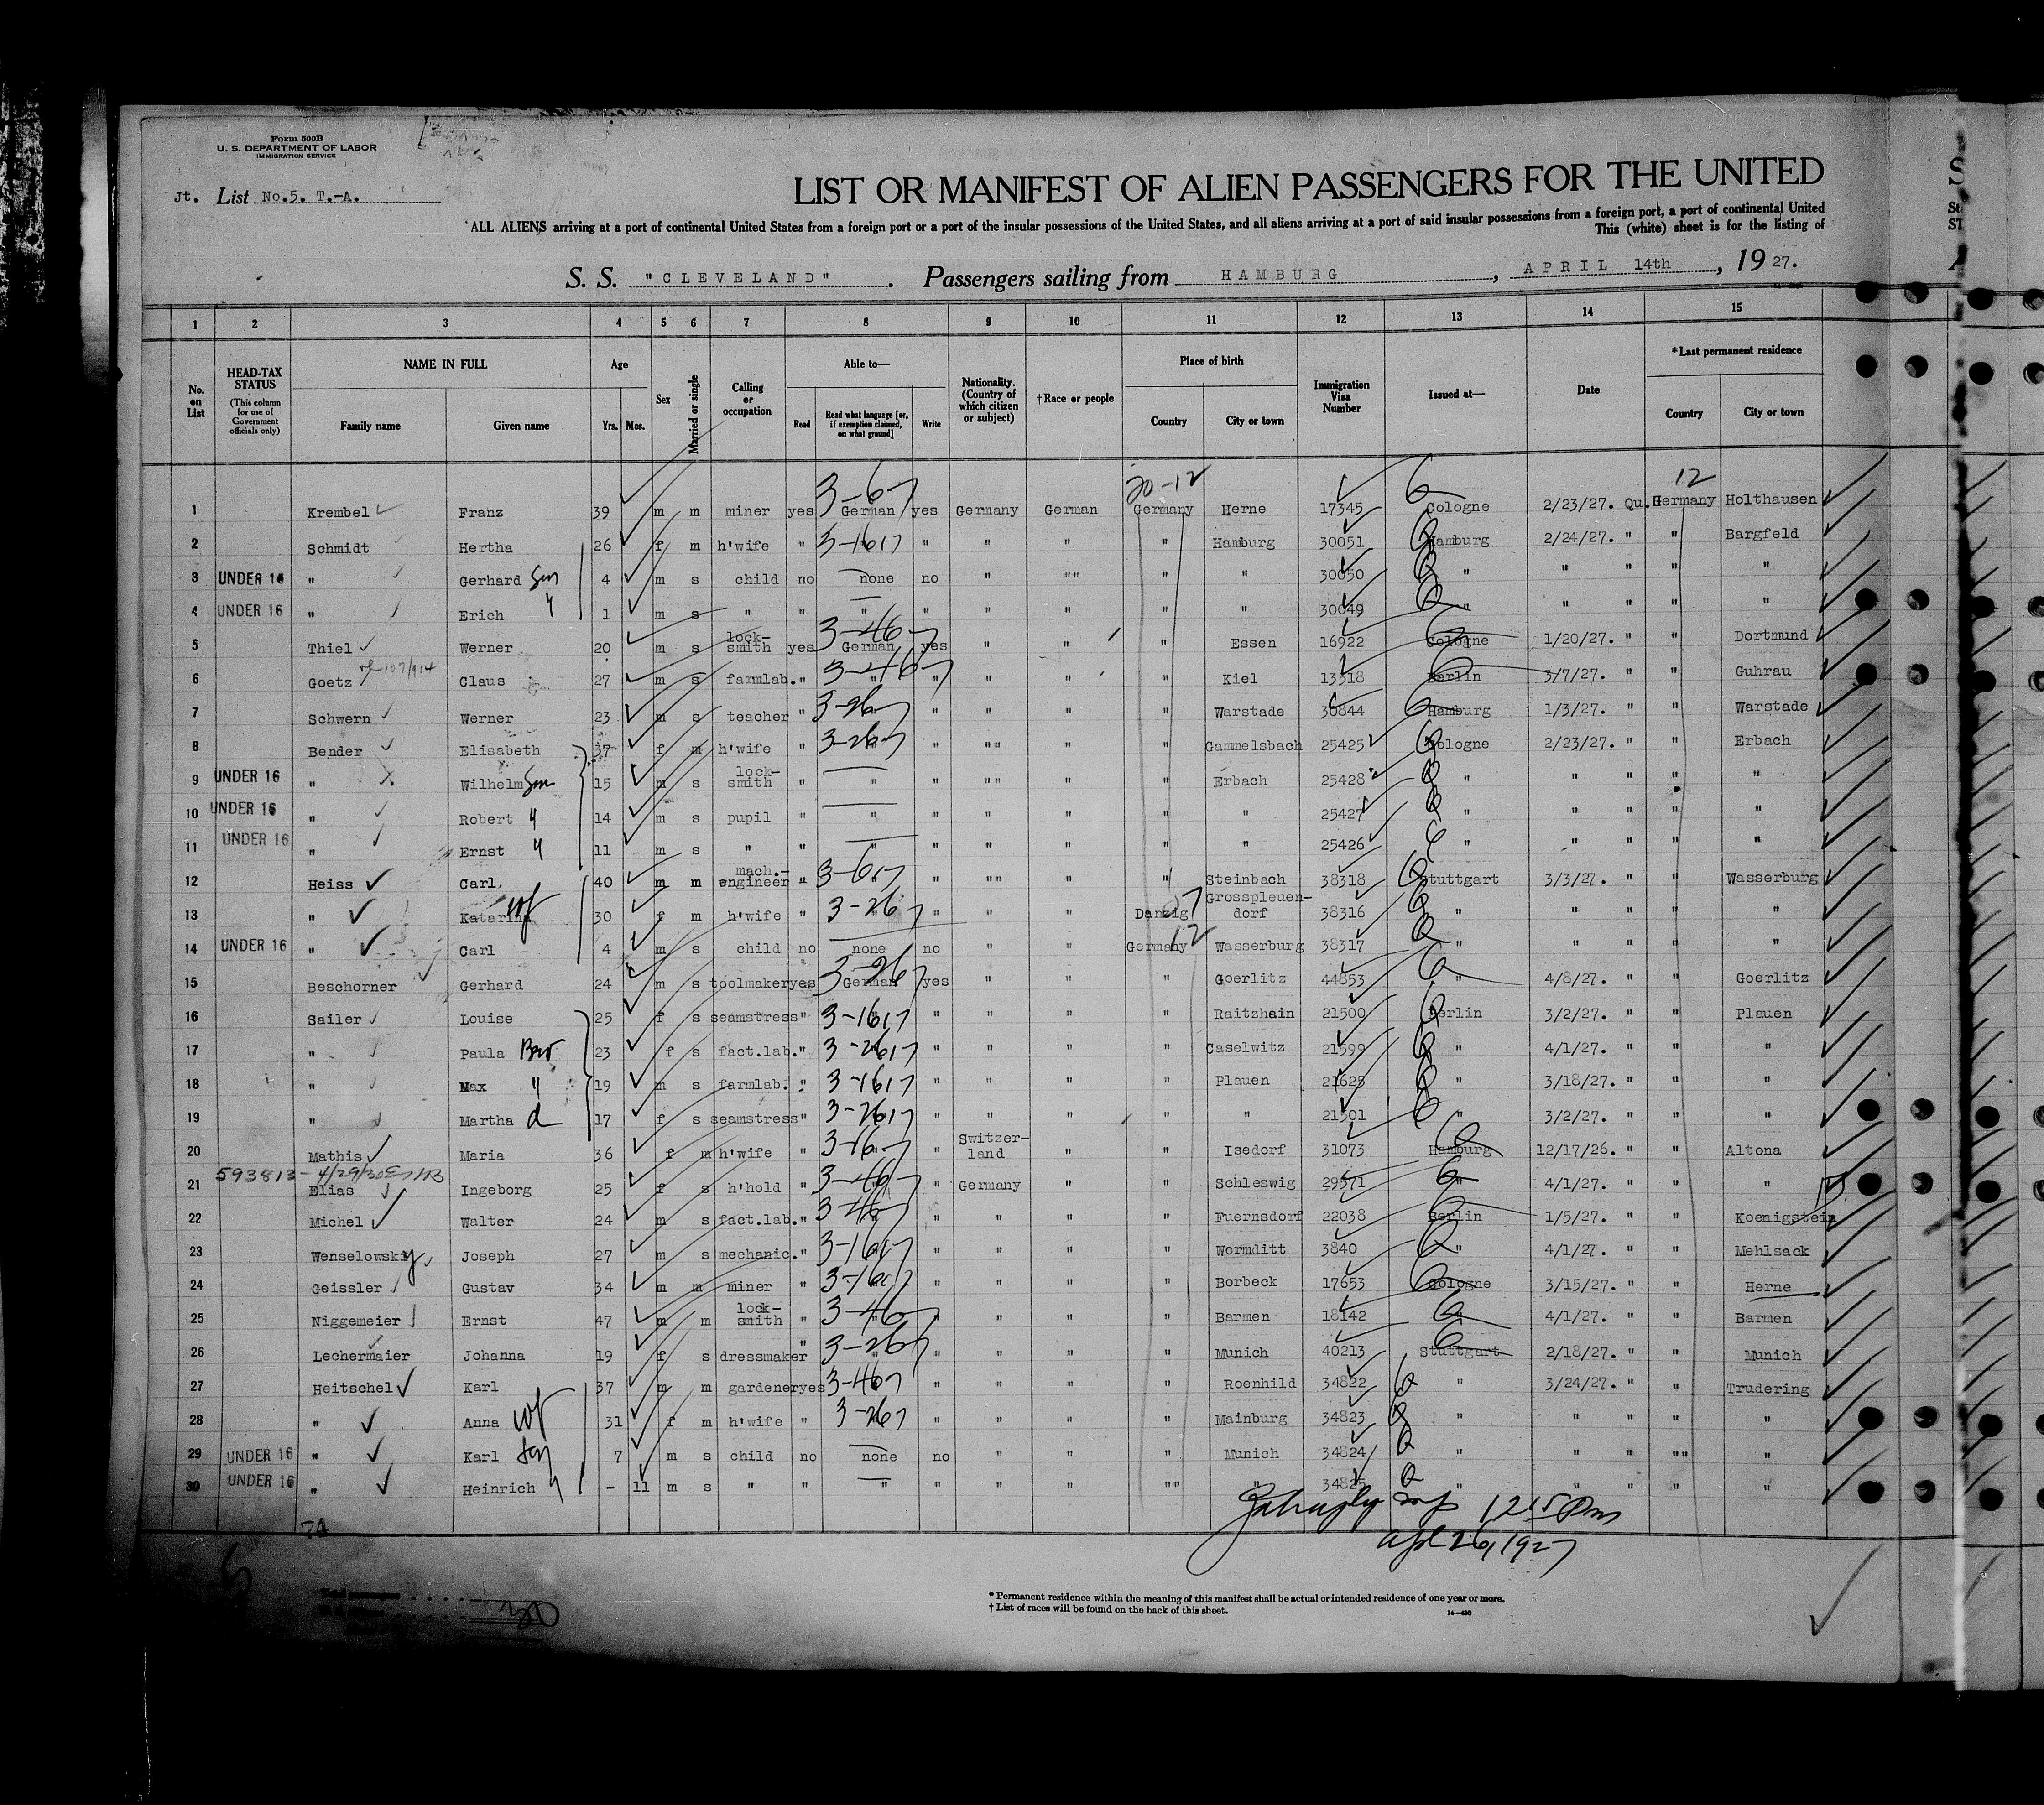 Form 500B
U. S. DEPARTMENT OF LABOR
IMMIGRATION SERVICE
Jt. List No.5. T.-A.
LIST OR MANIFEST OF ALIEN PASSENGERS FOR THE UNITED
ALL ALIENS arriving at a port of continental United States from a foreign port or a port of the insular possessions of the United States, and all aliens arriving at a port of said insular possessions from a foreign port, a port of continental United
This (white) sheet is for the listing of
S. S. "CLEVELAND". Passengers sailing from HAMBURG, APRIL 14th, 19 27.
1 2 3 4 5 6 7 8 9 10 11 12 13 14 15
No. on List
HEAD-TAX STATUS (This column for use of Government officials only)
NAME IN FULL Family name Given name
Age Yrs. Mos.
Sex
Married or single
Calling or occupation
Able to— Read Read what language [or, if exemption claimed, on what ground] Write
Nationality. (Country of which citizen or subject)
†Race or people
Place of birth Country City or town
Immigration Visa Number
Issued at—
Date
*Last permanent residence Country City or town
20-12 12
1 Krembel Franz 39 m m miner yes German yes Germany German Germany Herne 17345 Cologne 2/23/27. Qu. Germany Holthausen
2 Schmidt Hertha 26 f m h'wife " " " " " Hamburg 30051 Hamburg 2/24/27. " " Bargfeld
3 UNDER 16 " Gerhard Son 4 m s child no none no " "" " " 30050 " " " " "
4 UNDER 16 " Erich " 1 m s " " " " " " " " 30049 " " " " "
5 Thiel Werner 20 m s lock-smith yes German yes " " " Essen 16922 Cologne 1/20/27. " " Dortmund
6 Goetz Claus 27 m s farmlab. " " " " " " Kiel 13518 Berlin 3/7/27. " " Guhrau
7 Schwern Werner 23 m s teacher " " " " " Warstade 30844 Hamburg 1/3/27. " " Warstade
8 Bender Elisabeth 37 f m h'wife " " " "" " " Gammelsbach 25425 Cologne 2/23/27. " " Erbach
9 UNDER 16 " Wilhelm Son 15 m s lock-smith " " " "" " " Erbach 25428 " " " " "
10 UNDER 16 " Robert " 14 m s pupil " " " " " " " 25427 " " " " "
11 UNDER 16 " Ernst " 11 m s " " " " " " " " 25426 " " " " "
12 Heiss Carl, 40 m m mach.-engineer " " "" " " Steinbach 38318 Stuttgart 3/3/27. " " Wasserburg
13 " Katarina wf 30 f m h'wife " " " " " Danzig Grosspleuen-dorf 38316 " " " " "
14 UNDER 16 " Carl 4 m s child no none no " " Germany Wasserburg 38317 " " " " "
15 Beschorner Gerhard 24 m s toolmaker yes German yes " " " Goerlitz 44853 " 4/8/27. " " Goerlitz
16 Sailer Louise 25 f s seamstress " " " " " Raitzhain 21500 Berlin 3/2/27. " " Plauen
17 " Paula 23 f s fact.lab. " " " " " Caselwitz 21599 " 4/1/27. " " "
18 " Max " 19 m s farmlab. " " " " " Plauen 21625 " 3/18/27. " " "
19 " Martha 17 f s seamstress " " " " " " 21501 " 3/2/27. " " "
20 Mathis Maria 36 f m h'wife " " Switzer-land " " Isedorf 31073 Hamburg 12/17/26. " " Altona
593813-4/29/30
21 Elias Ingeborg 25 f s h'hold " " Germany " " Schleswig 29571 " 4/1/27. " " "
22 Michel Walter 24 m s fact.lab. " " " " " " Fuernsdorf 22038 Berlin 1/5/27. " " Koenigstein
23 Wenselowsky Joseph 27 m s mechanic. " " " " " Wormditt 3840 " 4/1/27. " " Mehlsack
24 Geissler Gustav 34 m m miner " " " " " Borbeck 17653 Cologne 3/15/27. " " Herne
25 Niggemeier Ernst 47 m m lock-smith " " " " " Barmen 18142 " 4/1/27. " " Barmen
26 Lechermaier Johanna 19 f s dressmaker " " " " " Munich 40213 Stuttgart 2/18/27. " " Munich
27 Heitschel Karl 37 m m gardener yes " " " " Roenhild 34822 " 3/24/27. " " Trudering
28 " Anna wf 31 f m h'wife " " " " " Mainburg 34823 " " " " "
29 UNDER 16 " Karl Son 7 m s child no none no " " " Munich 34824 " " " "" "
30 UNDER 16 " Heinrich " - 11 m s " " " " " " "" " 34825 " " " " "
12 15 Pm
Apl 26, 1927
* Permanent residence within the meaning of this manifest shall be actual or intended residence of one year or more.
† List of races will be found on the back of this sheet.
14—430